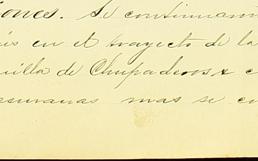 iones. Se continuaron
is en el trayecto de la
uilla de Chupaderos x
semanas mas se con